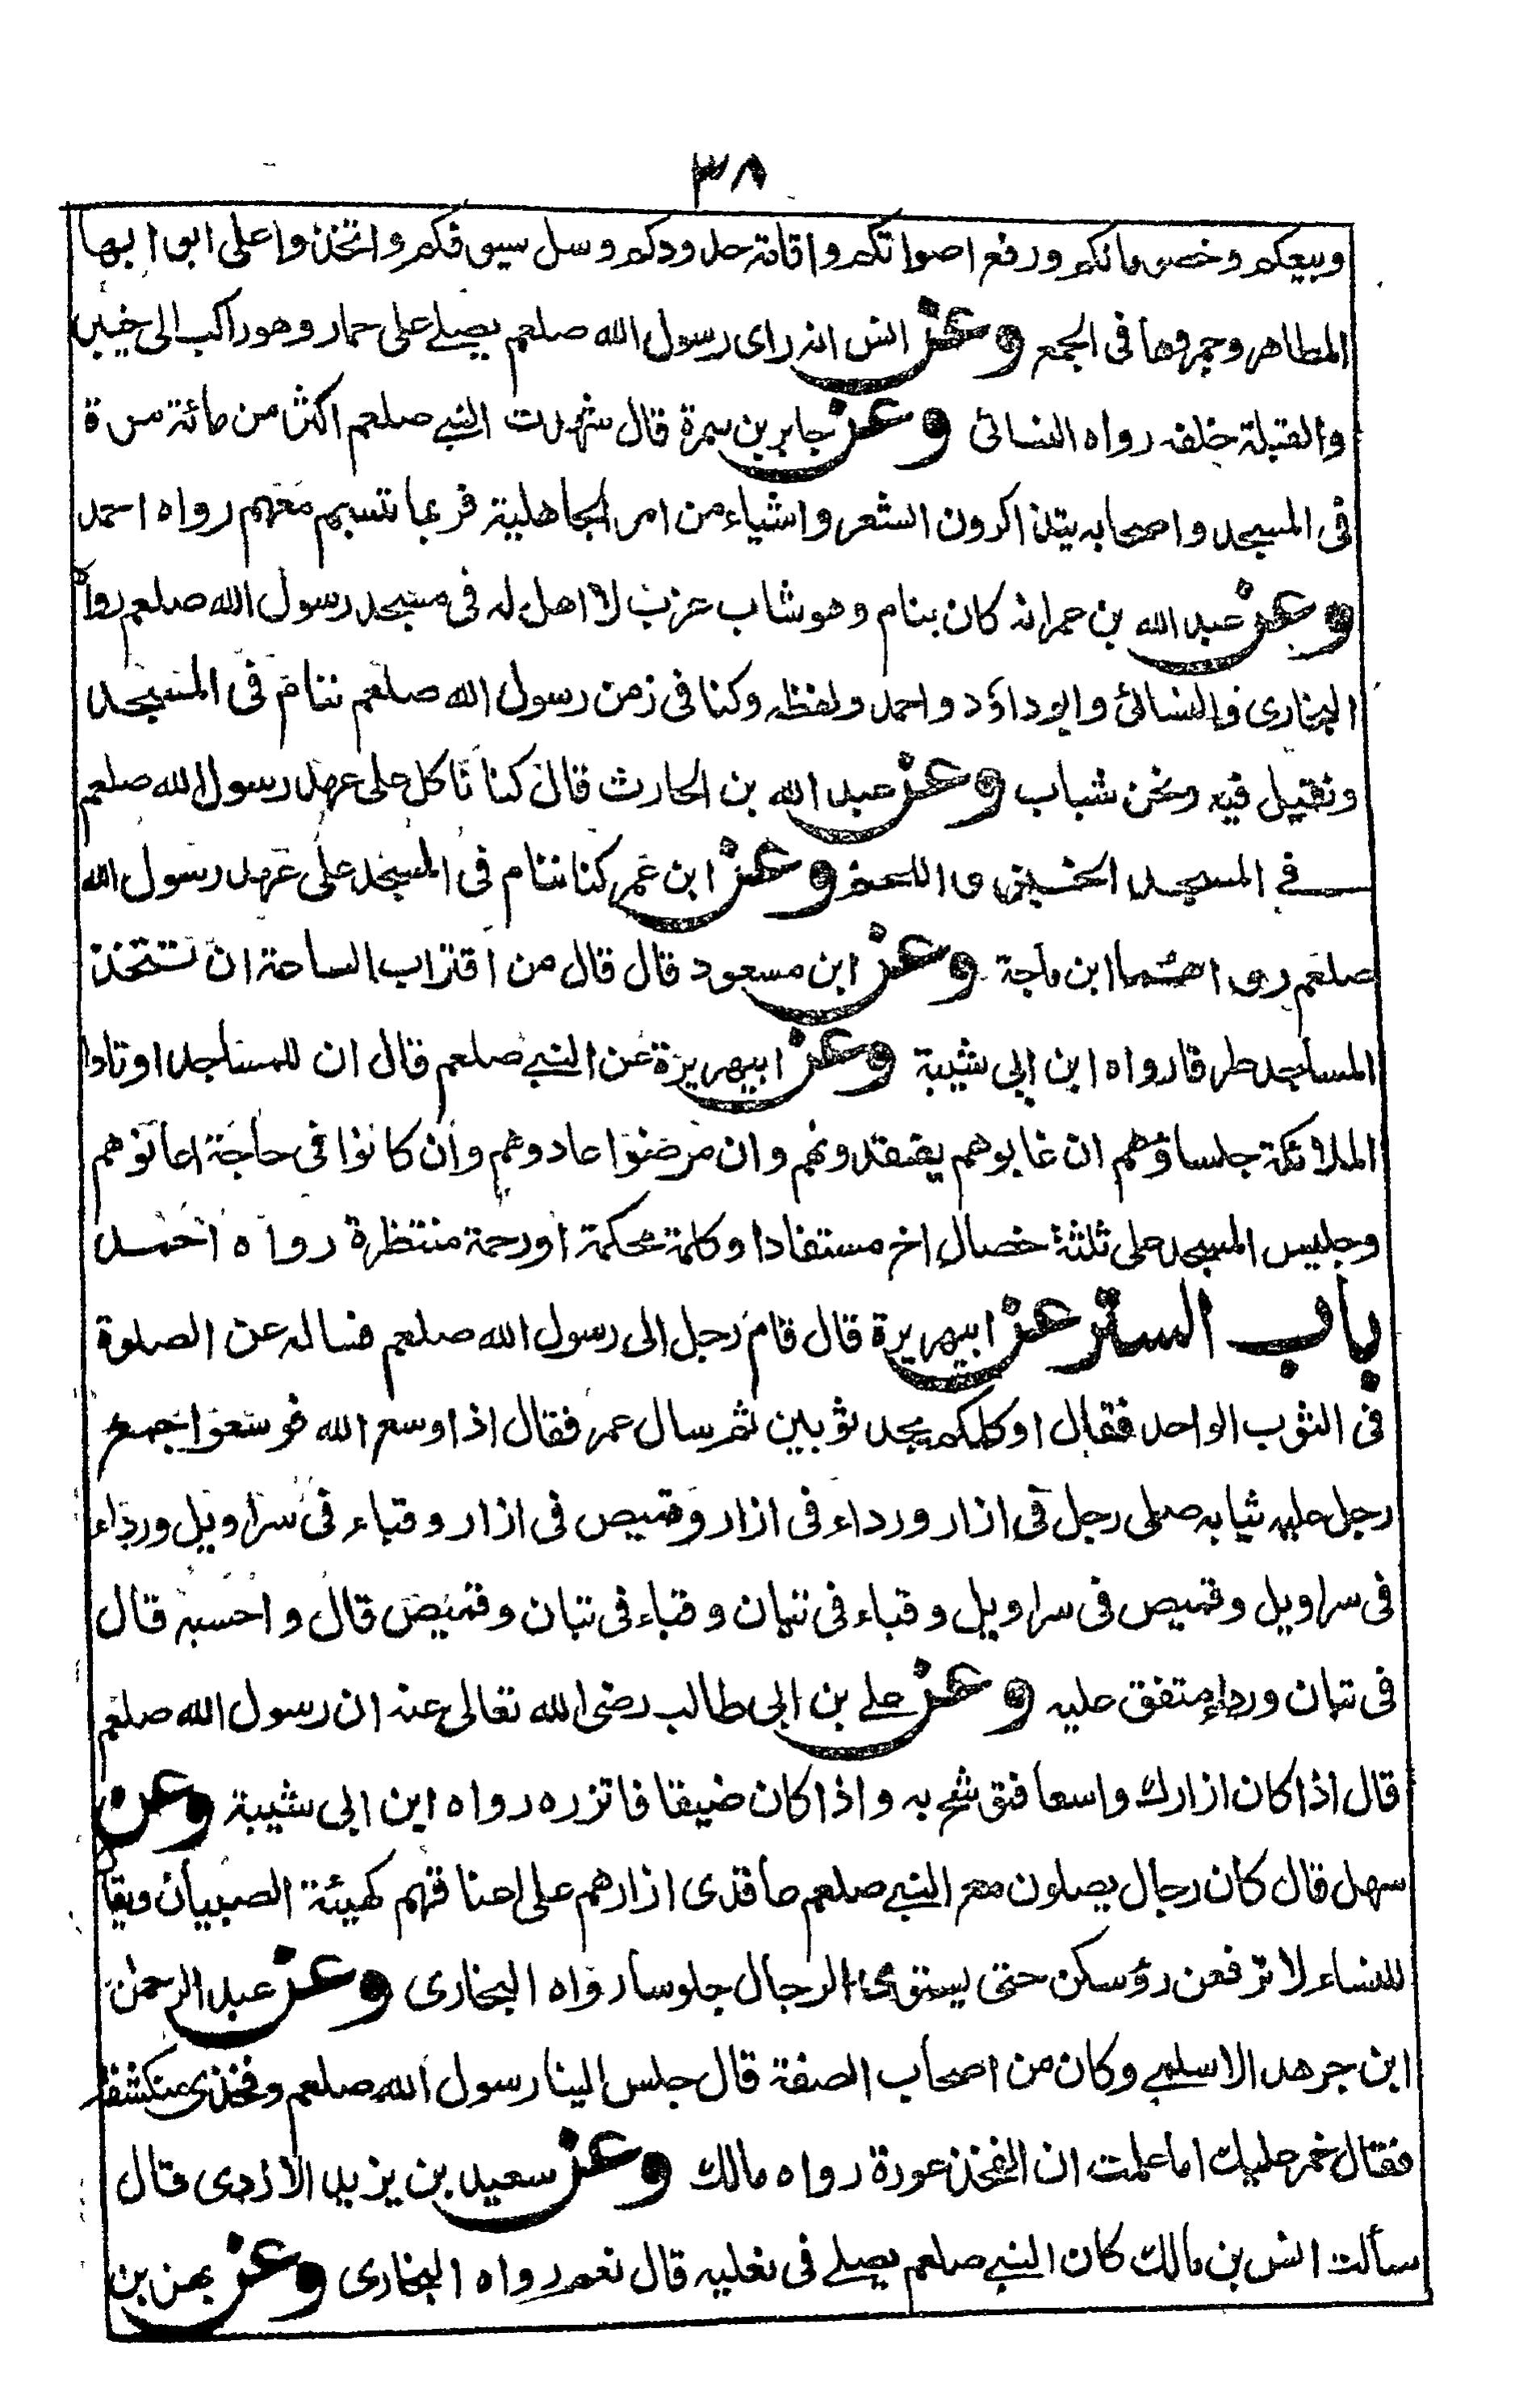 ٣٨
وبيعكم وخصوماتكم ورفع اصواتكم واقامة حدودكم وسل سيوفكم واتخذوا على ابوابها
المطاهر وجمروها فى الجمع وعن انس انه راى رسول الله صلعم يصلے على حمار وهو راكب الى خيبر
والقبلة خلفه رواه النسائى وعن جابر بن سمرة قال شهدت النبے صلعم اكثر من مائة مرة
فى المسجد واصحابه يتذاكرون الشعر واشياء من امر الجاهلية فربما تبسم معهم رواه احمد
وعن عبد الله بن عمر انه كان ينام وهو شاب عزب لا اهل له فى مسجد رسول الله صلعم رواه
البخارى والنسائى وابو داؤد واحمد ولفظه وكنا فى زمن رسول الله صلعم ننام فى المسجد
ونقيل فيه ونحن شباب وعن عبد الله بن الحارث قال كنا ناكل على عهد رسول الله صلعم
فے المسجد الخبز واللحم وعن ابن عمر كنا ننام فى المسجد على عهد رسول الله
صلعم رواهما ابن ماجة وعن ابن مسعود قال قال من اقتراب الساعة ان تتخذ
المساجد طرقا رواه ابن ابى شيبة وعن ابيهريرة عن النبے صلعم قال ان للمساجد اوتادا
الملائكة جلساؤهم ان غابوهم يفتقدونهم وان مرضوا عادوهم وان كانوا فى حاجة اعانوهم
وجليس المسجد على ثلثة خصال اخ مستفادا وكلمة محكمة او رحمة منتظرة رواه احمد
باب الستر عن ابيهريرة قال قام رجل الى رسول الله صلعم فساله عن الصلوة
فى الثوب الواحد فقال اوكلكم يجد ثوبين ثم سال عمر فقال اذا وسع الله فوسعوا جمع
رجل عليه ثيابه صلى رجل فى ازار ورداء فى ازار وقميص فى ازار وقباء فى سراويل ورداء
فى سراويل وقميص فى سراويل وقباء فى تبان وقباء فى تبان وقميص قال واحسبه قال
فى تبان ورداء متفق عليه وعن علے بن ابى طالب رضى الله تعالى عنه ان رسول الله صلعم
قال اذا كان ازارك واسعا فتوشح به واذا كان ضيقا فاتزره رواه ابن ابى شيبة وعن
سهل قال كان رجال يصلون مع النبے صلعم عاقدى ازارهم على اعناقهم كهيئة الصبيان ويقال
للنساء لا ترفعن رؤسكن حتى يستوى الرجال جلوسا رواه البخارى وعن عبد الرحمن
ابن جرهد الاسلمے وكان من اصحاب الصفة قال جلس الينا رسول الله صلعم وفخذى منكشفة
فقال خمر عليك اما علمت ان الفخذ عورة رواه مالك وعن سعيد بن يزيد الازدى قال
سألت انس بن مالك كان النبے صلعم يصلے فى نعليه قال نعم رواه البخارى وعن بهز بن